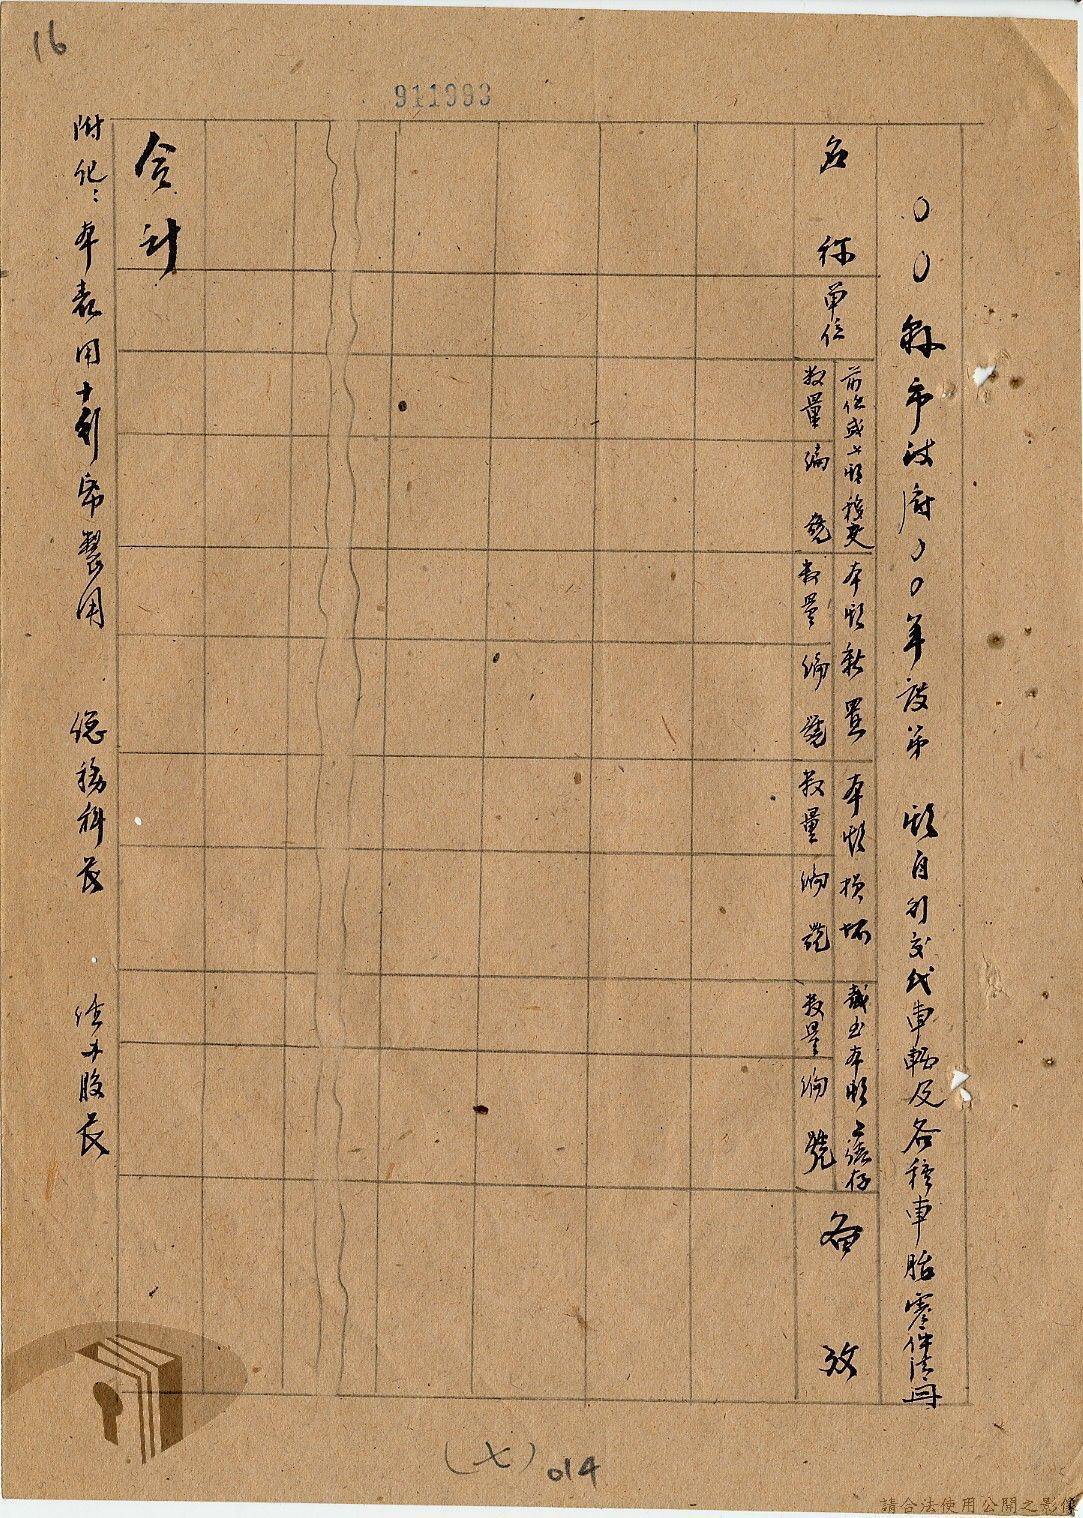 16
911993
〇〇縣市政府〇〇年度第 期自行交代車輛及各種車胎零件清冊
名称
單位
前任或上期移交
數量
編號
本期新置
數量
編號
本期損坏
數量
編號
截至本期上實存
數量
編號
备攷
合計
附紀：本表用十行帋製用 總務科長 股長
(七) 014
請合法使用公開之影像